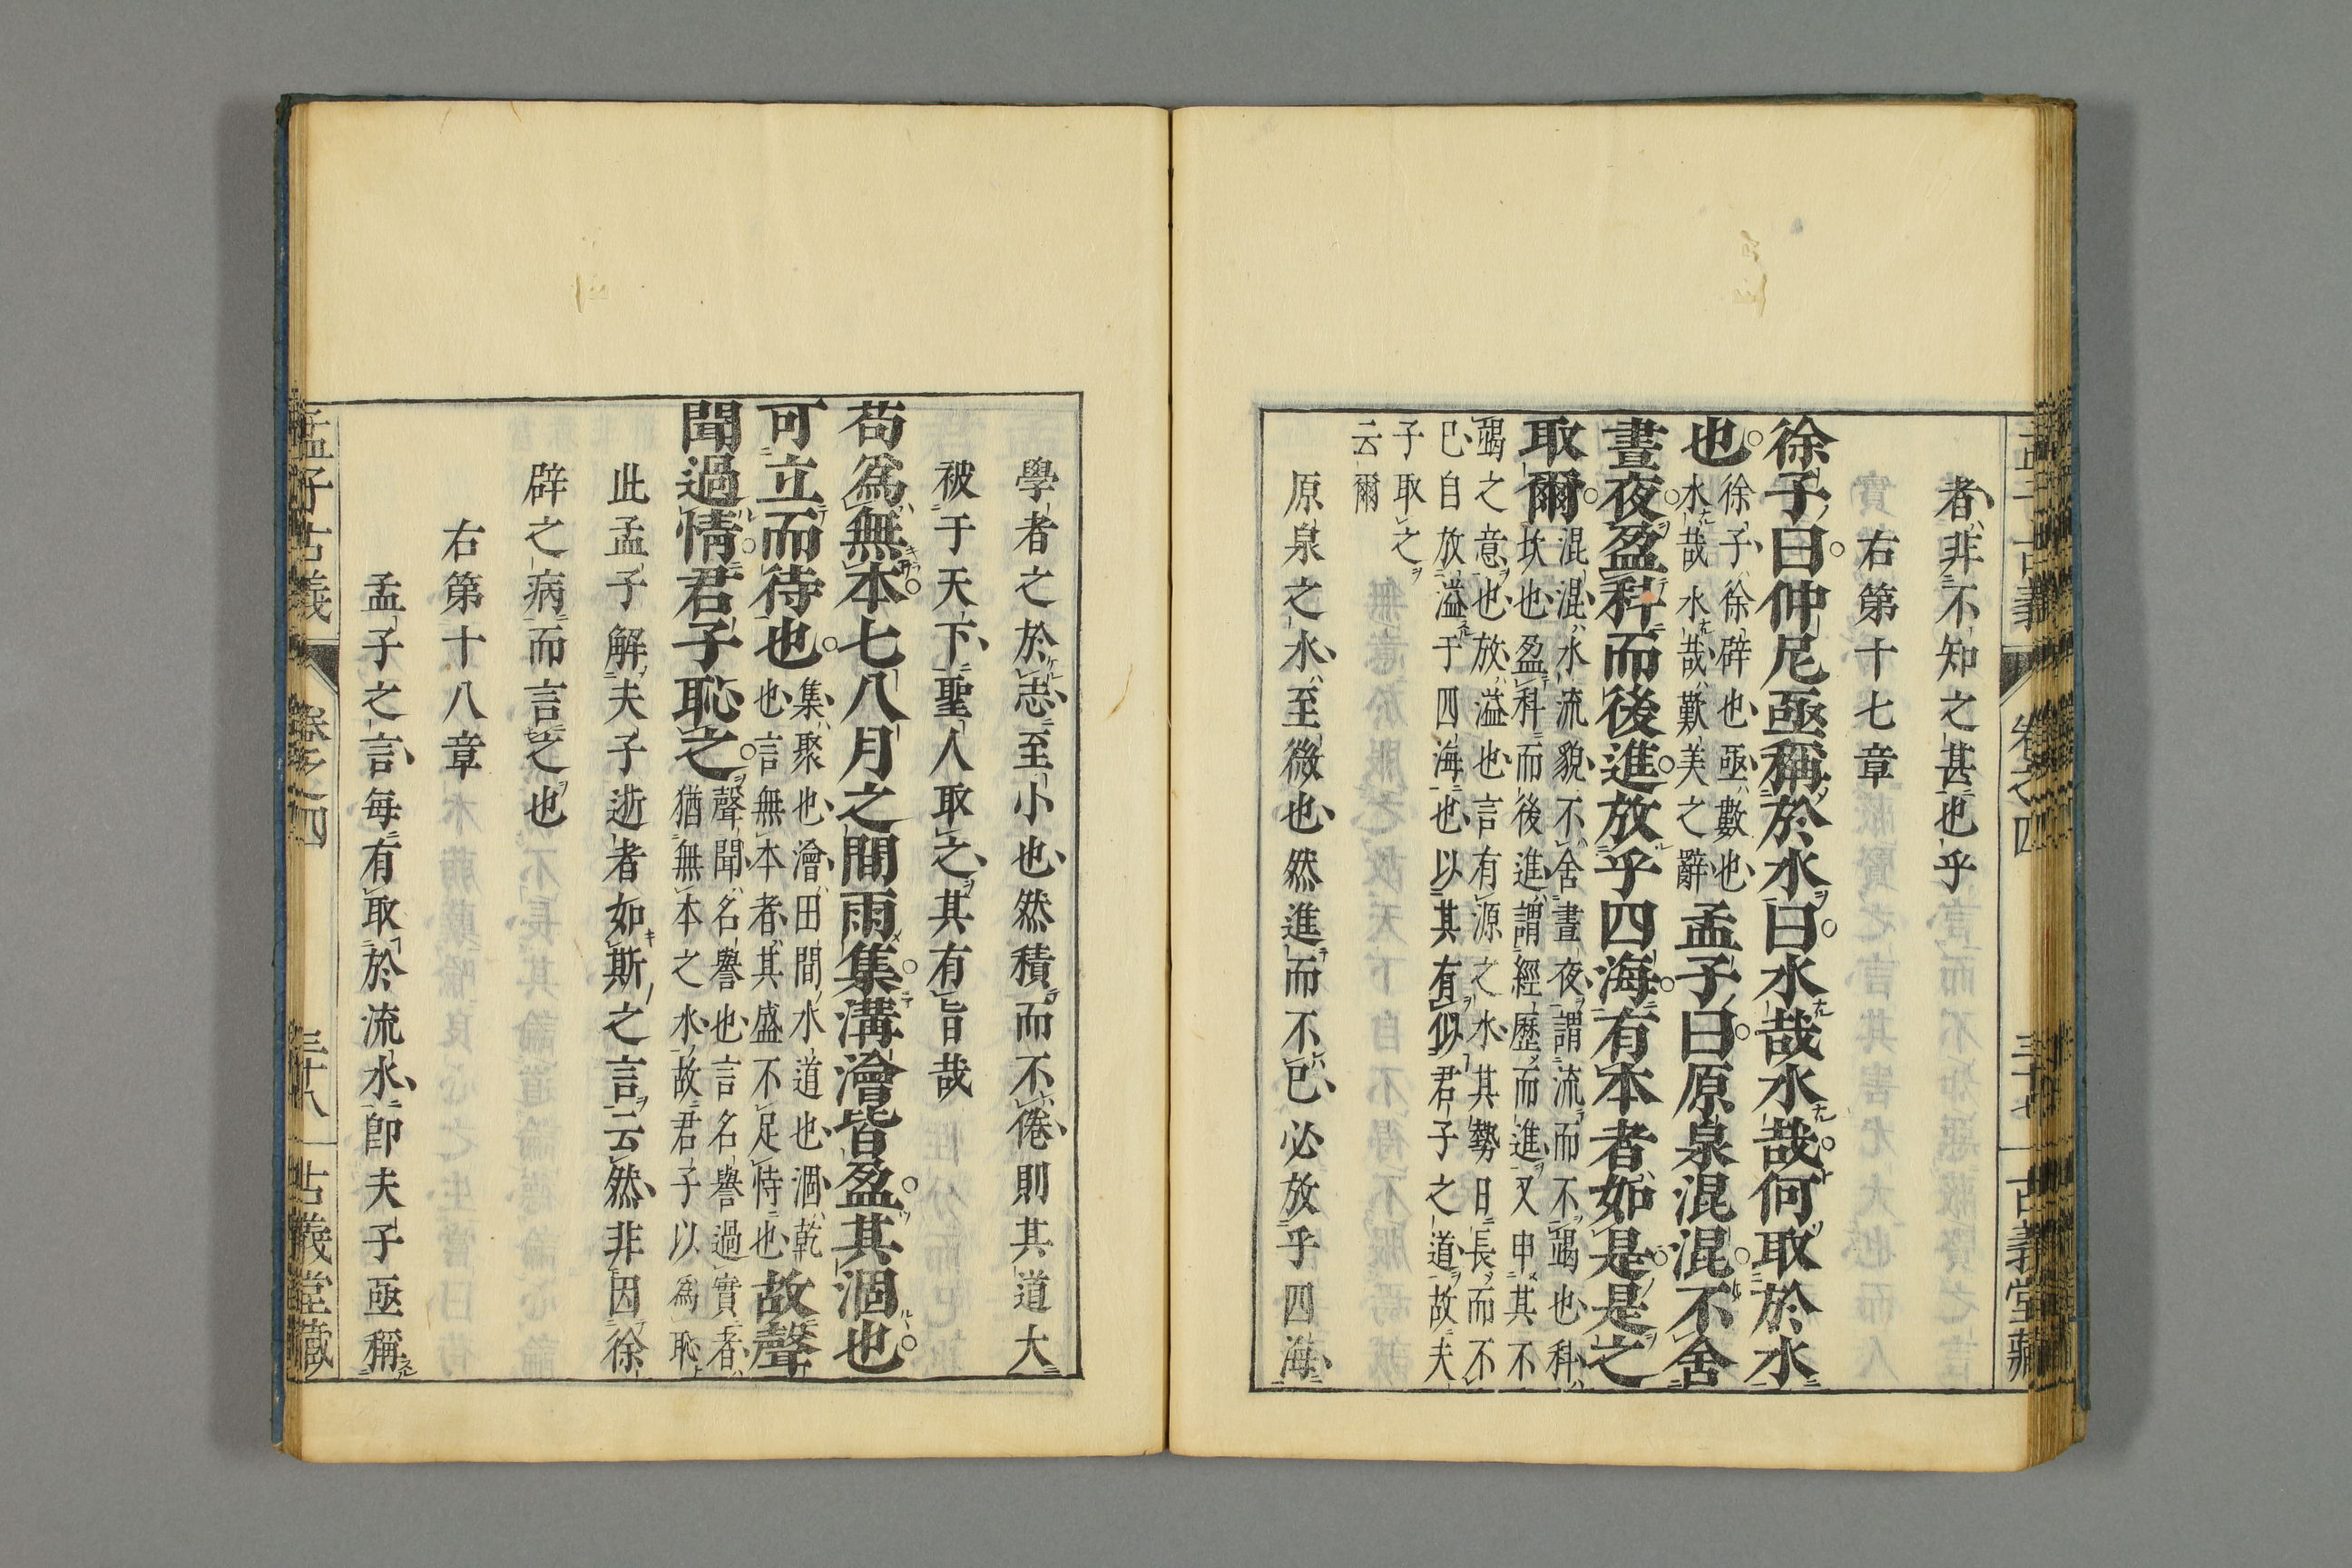 孟子古義 卷之四 三十七 古義堂藏
者非不知之甚也乎
右第十七章
徐子曰仲尼亟稱於水曰水哉水哉何取於水
也徐子徐辟也亟數也水哉水哉歎美之辭孟子曰原泉混混不舍
晝夜盈科而後進放乎四海有本者如是是之
取爾混混水流貌不舍晝夜謂流而不竭也科坎也盈科而後進謂經歷而進又申其不
竭之意也放溢也言有源之水其勢日長而不
已自放溢于四海也以其有似君子之道故夫
子取之
云爾
原泉之水至微也然進而不已必放乎四海
學者之於志至小也然積而不倦則其道大
被于天下聖人取之其有旨哉
苟爲無本七八月之間雨集溝澮皆盈其涸也
可立而待也集聚也澮田間水道也涸乾也言無本者其盛不足恃也故聲
聞過情君子恥之聲聞名譽也言名譽過實者猶無本之水故君子以爲恥
此孟子解夫子逝者如斯之言云然非因徐
辟之病而言之也
右第十八章
孟子之言每有取於流水卽夫子亟稱
孟子古義 卷之四 三十八 古義堂藏